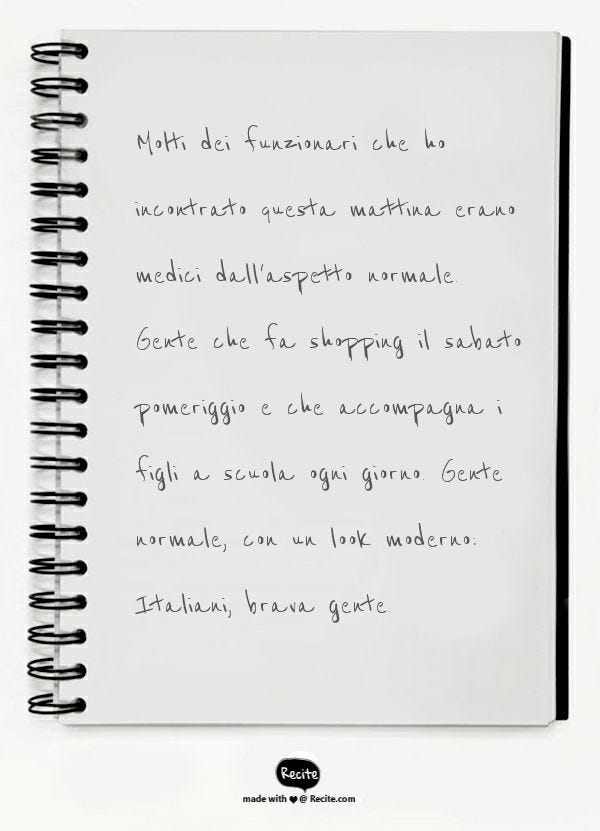 Molti dei funzionari che ho
incontrato questa mattina erano
medici dall'aspetto normale.
Gente che fa shopping il sabato
pomeriggio e che accompagna i
figli a scuola ogni giorno. Gente
normale, con un look moderno:
Italiani, brava gente.
Recite
made with ♥ @ Recite.com